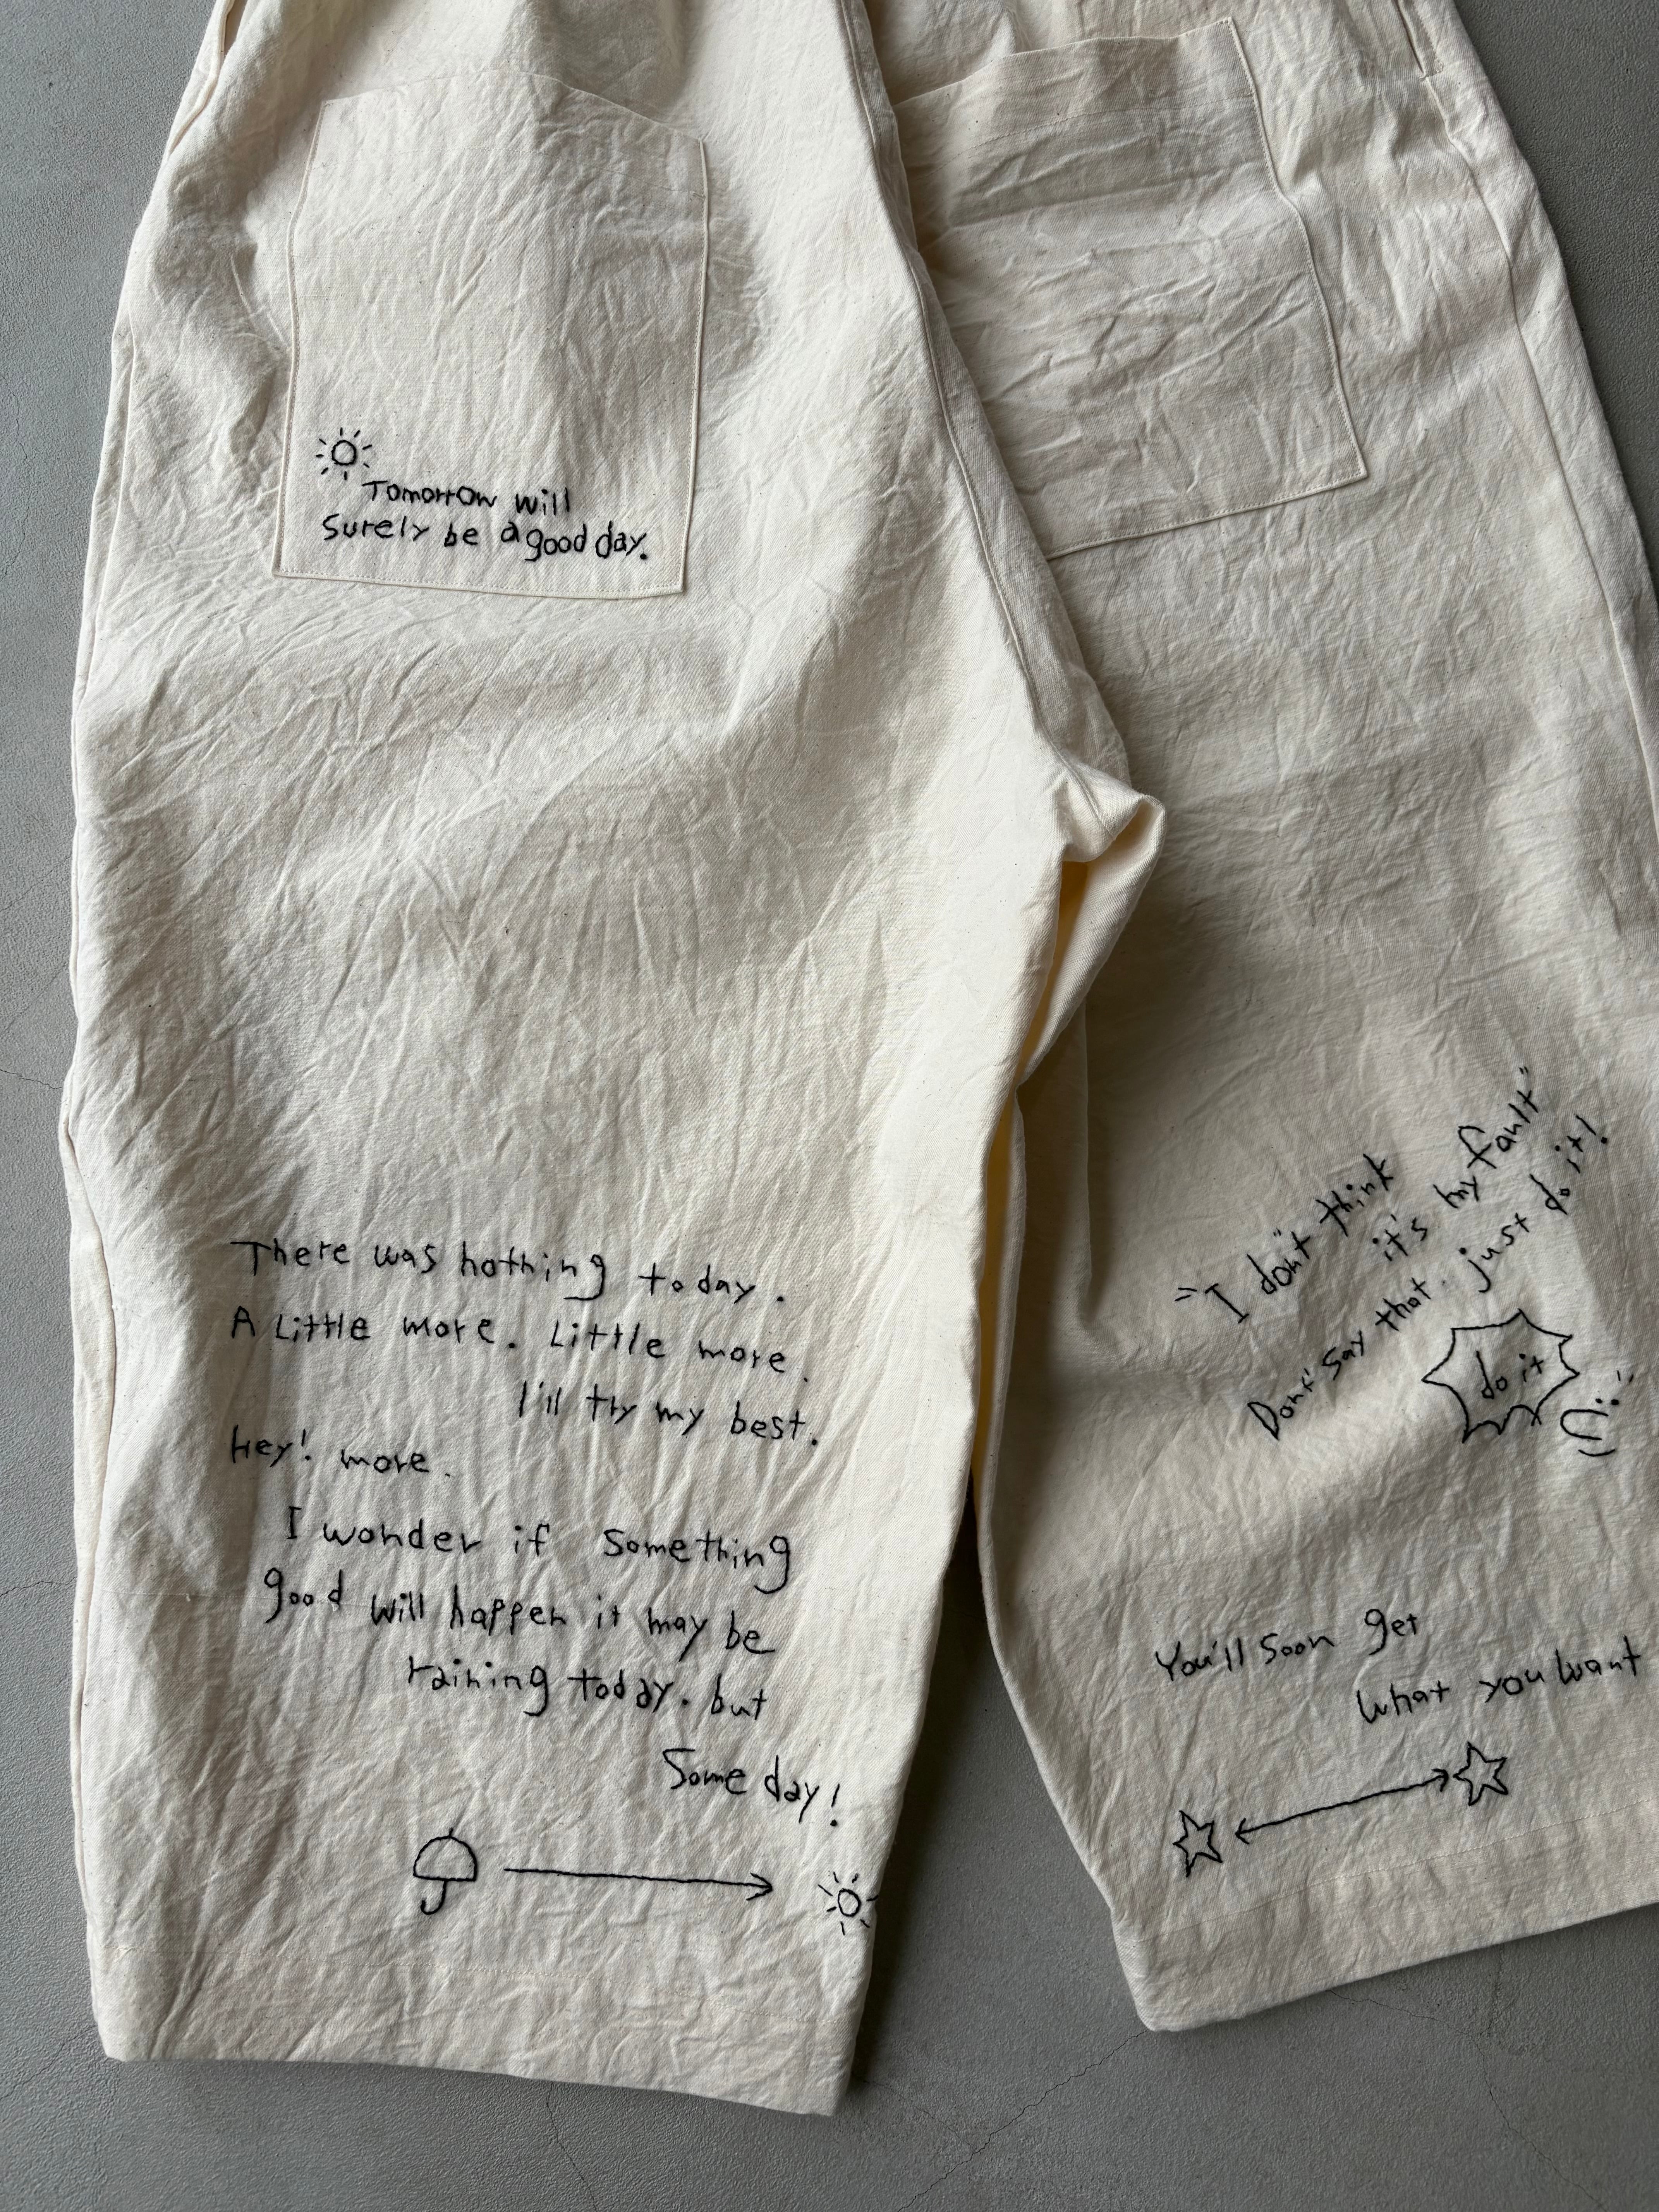 Tomorrow will
Surely be a good day.
There was nothing today.
A Little more. Little more.
I'll try my best.
Hey! more.
I wonder if something
good will happen it may be
raining today. but
Some day!
"I don't think
it's my fault"
Don't say that. just do it!
do it
You'll soon get
what you want